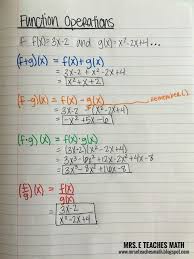 Function Operations
If f(x)=3x-2 and g(x)=x²-2x+4...
(f+g)(x) = f(x)+g(x)
= 3x-2+x²-2x+4
= x²+x+2
(f-g)(x) = f(x)-g(x)
= 3x-2-(x²-2x+4) remember!
= -x²+5x-6
(f·g)(x) = f(x)·g(x)
= (3x-2)(x²-2x+4)
= 3x³-6x²+12x-2x²+4x-8
= 3x³-8x²+16x-8
(f/g)(x) = f(x)/g(x)
= 3x-2/x²-2x+4
MRS. E TEACHES MATH
www.mrseteachesmath.blogspot.com